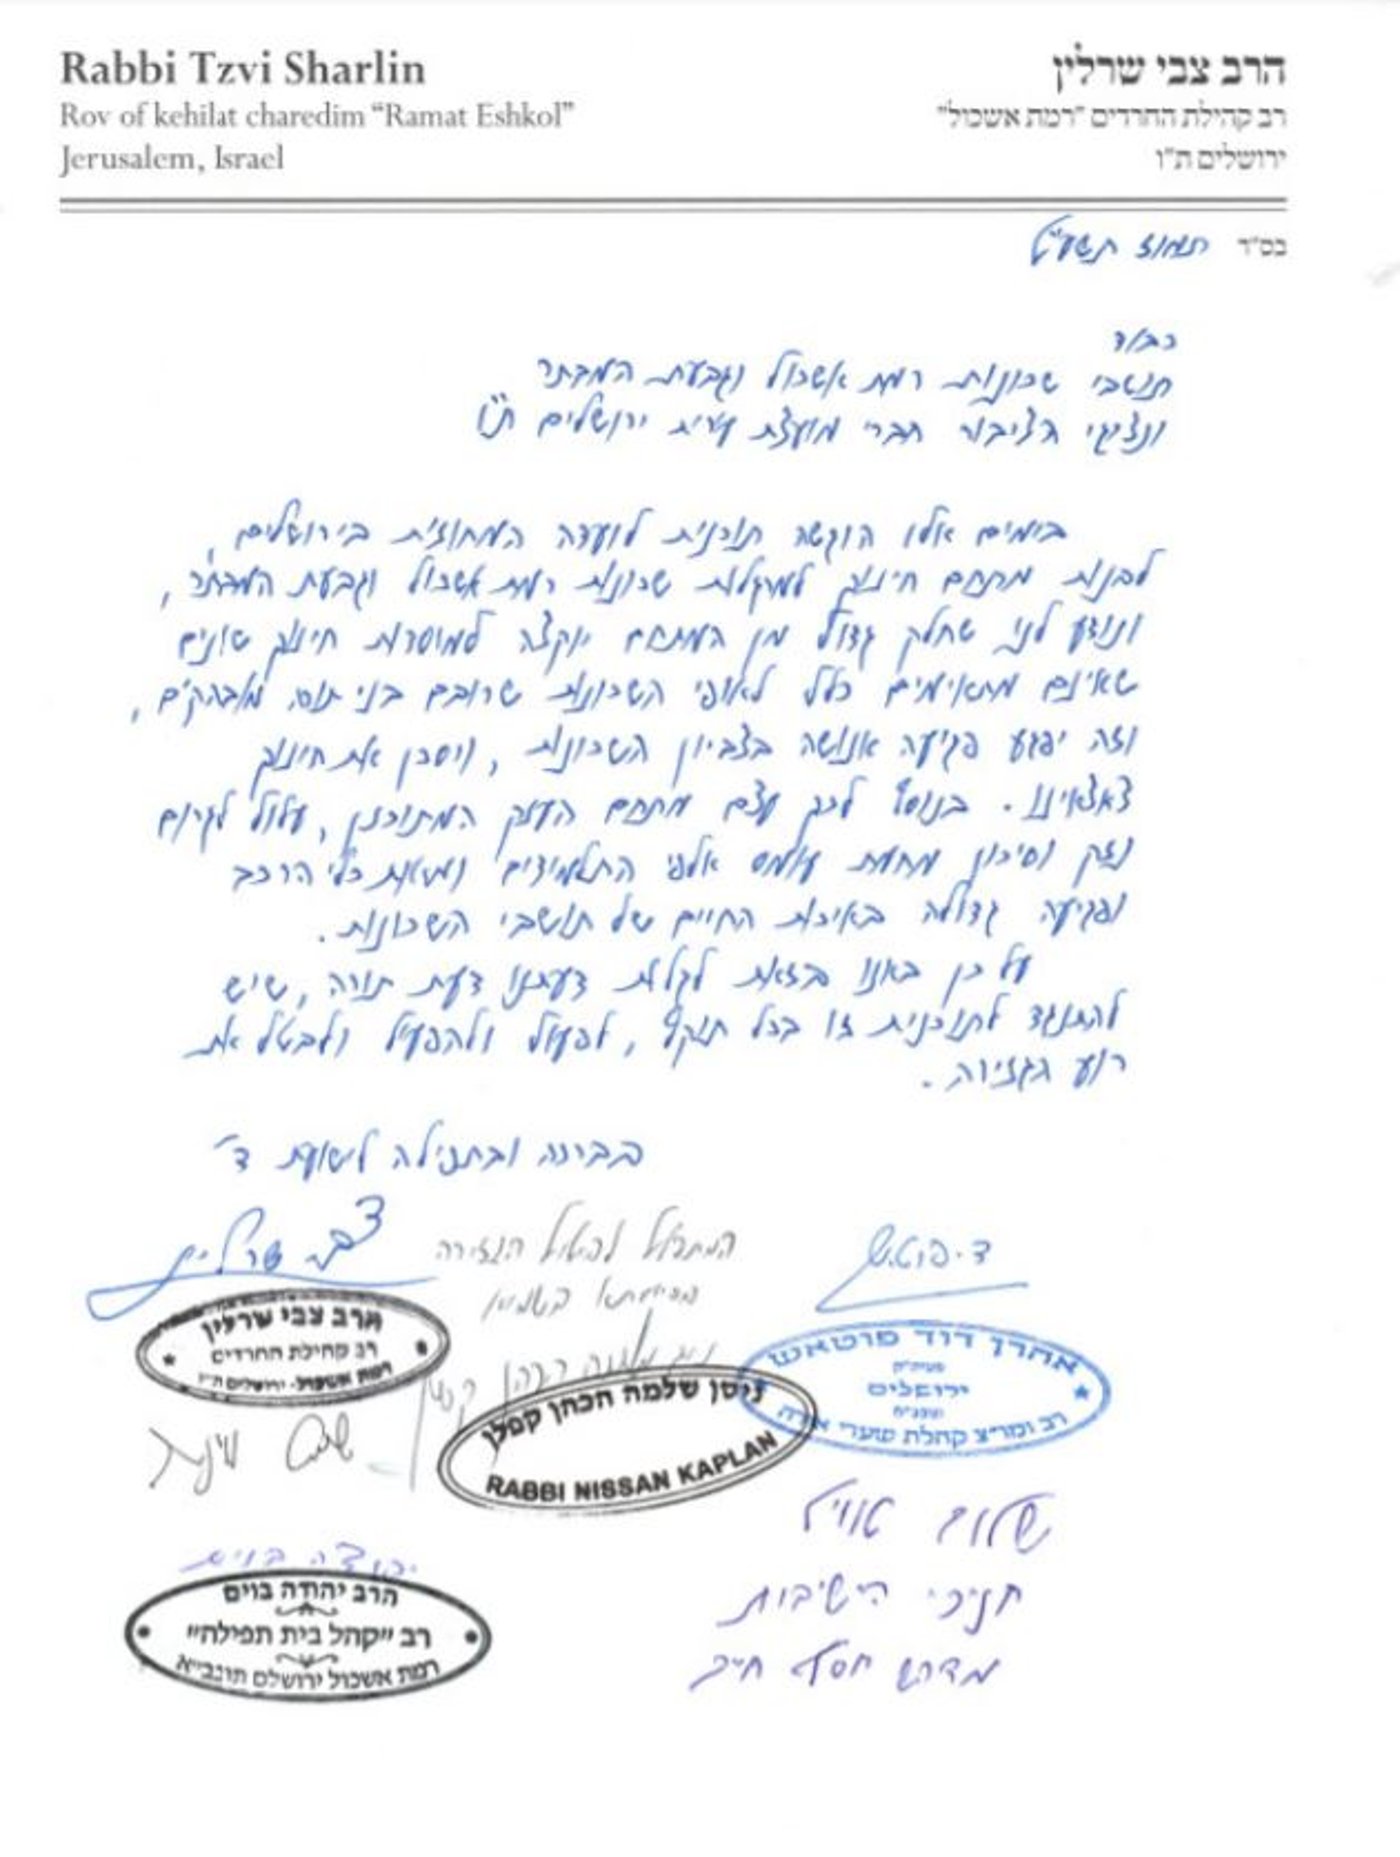 Rabbi Tzvi Sharlin
Rov of kehilat charedim “Ramat Eshkol”
Jerusalem, Israel
הרב צבי שרלין
רב קהילת החרדים "רמת אשכול"
ירושלים ת"ו
בס"ד תמוז תשע"ט
כבוד
תושבי שכונות רמת אשכול וגבעת המבתר
ונציגי הציבור חברי מועצת עירית ירושלים ת"ו
בימים אלו הוגשה תוכנית לועדה המחוזית בירושלים,
לבנות מתחם חינוך למרגלות שכונות רמת אשכול וגבעת המבתר,
ונודע לנו שחלק גדול מן המתחם יוקצה למוסדות חינוך שונים
שאינם מתאימים כלל לאופי השכונות שרובם בני תורה מובהקים,
וזה יפגע פגיעה אנושה בצביון השכונות, ויסכן את חינוך
צאצאינו. בנוסף לכך עצם מתחם הענק המתוכנן, עלול לגרום
נזק וסיכון מחמת עומס אלפי התלמידים ונשיאת כלי הרכב
ופגיעה גדולה באיכות החיים של תושבי השכונות.
על כן באנו בזאת לגלות דעתנו דעת תורה, שיש
להתנגד לתוכנית זו בכל תוקף, לפעול ולהפעיל ולבטל את
רוע הגזירה.
בברכה ובתפילה לישועת ד'
צבי שרלין
המתפלל לביטול הגזירה
ד. פוטש
הרב צבי שרלין
רב קהילת החרדים
רמת אשכול - ירושלים ת"ו
ניסן שלמה הכהן קפלן
RABBI NISSAN KAPLAN
אהרן דוד פוטאש
פעיה"ק
ירושלים
תובב"א
רב ומו"צ קהלת שערי אורה
יהודה בוים
הרב יהודה בוים
רב "קהל בית תפילה"
רמת אשכול ירושלם תובב"א
שלום טויל
חניכי הישיבות
מדרש יוסף חיים